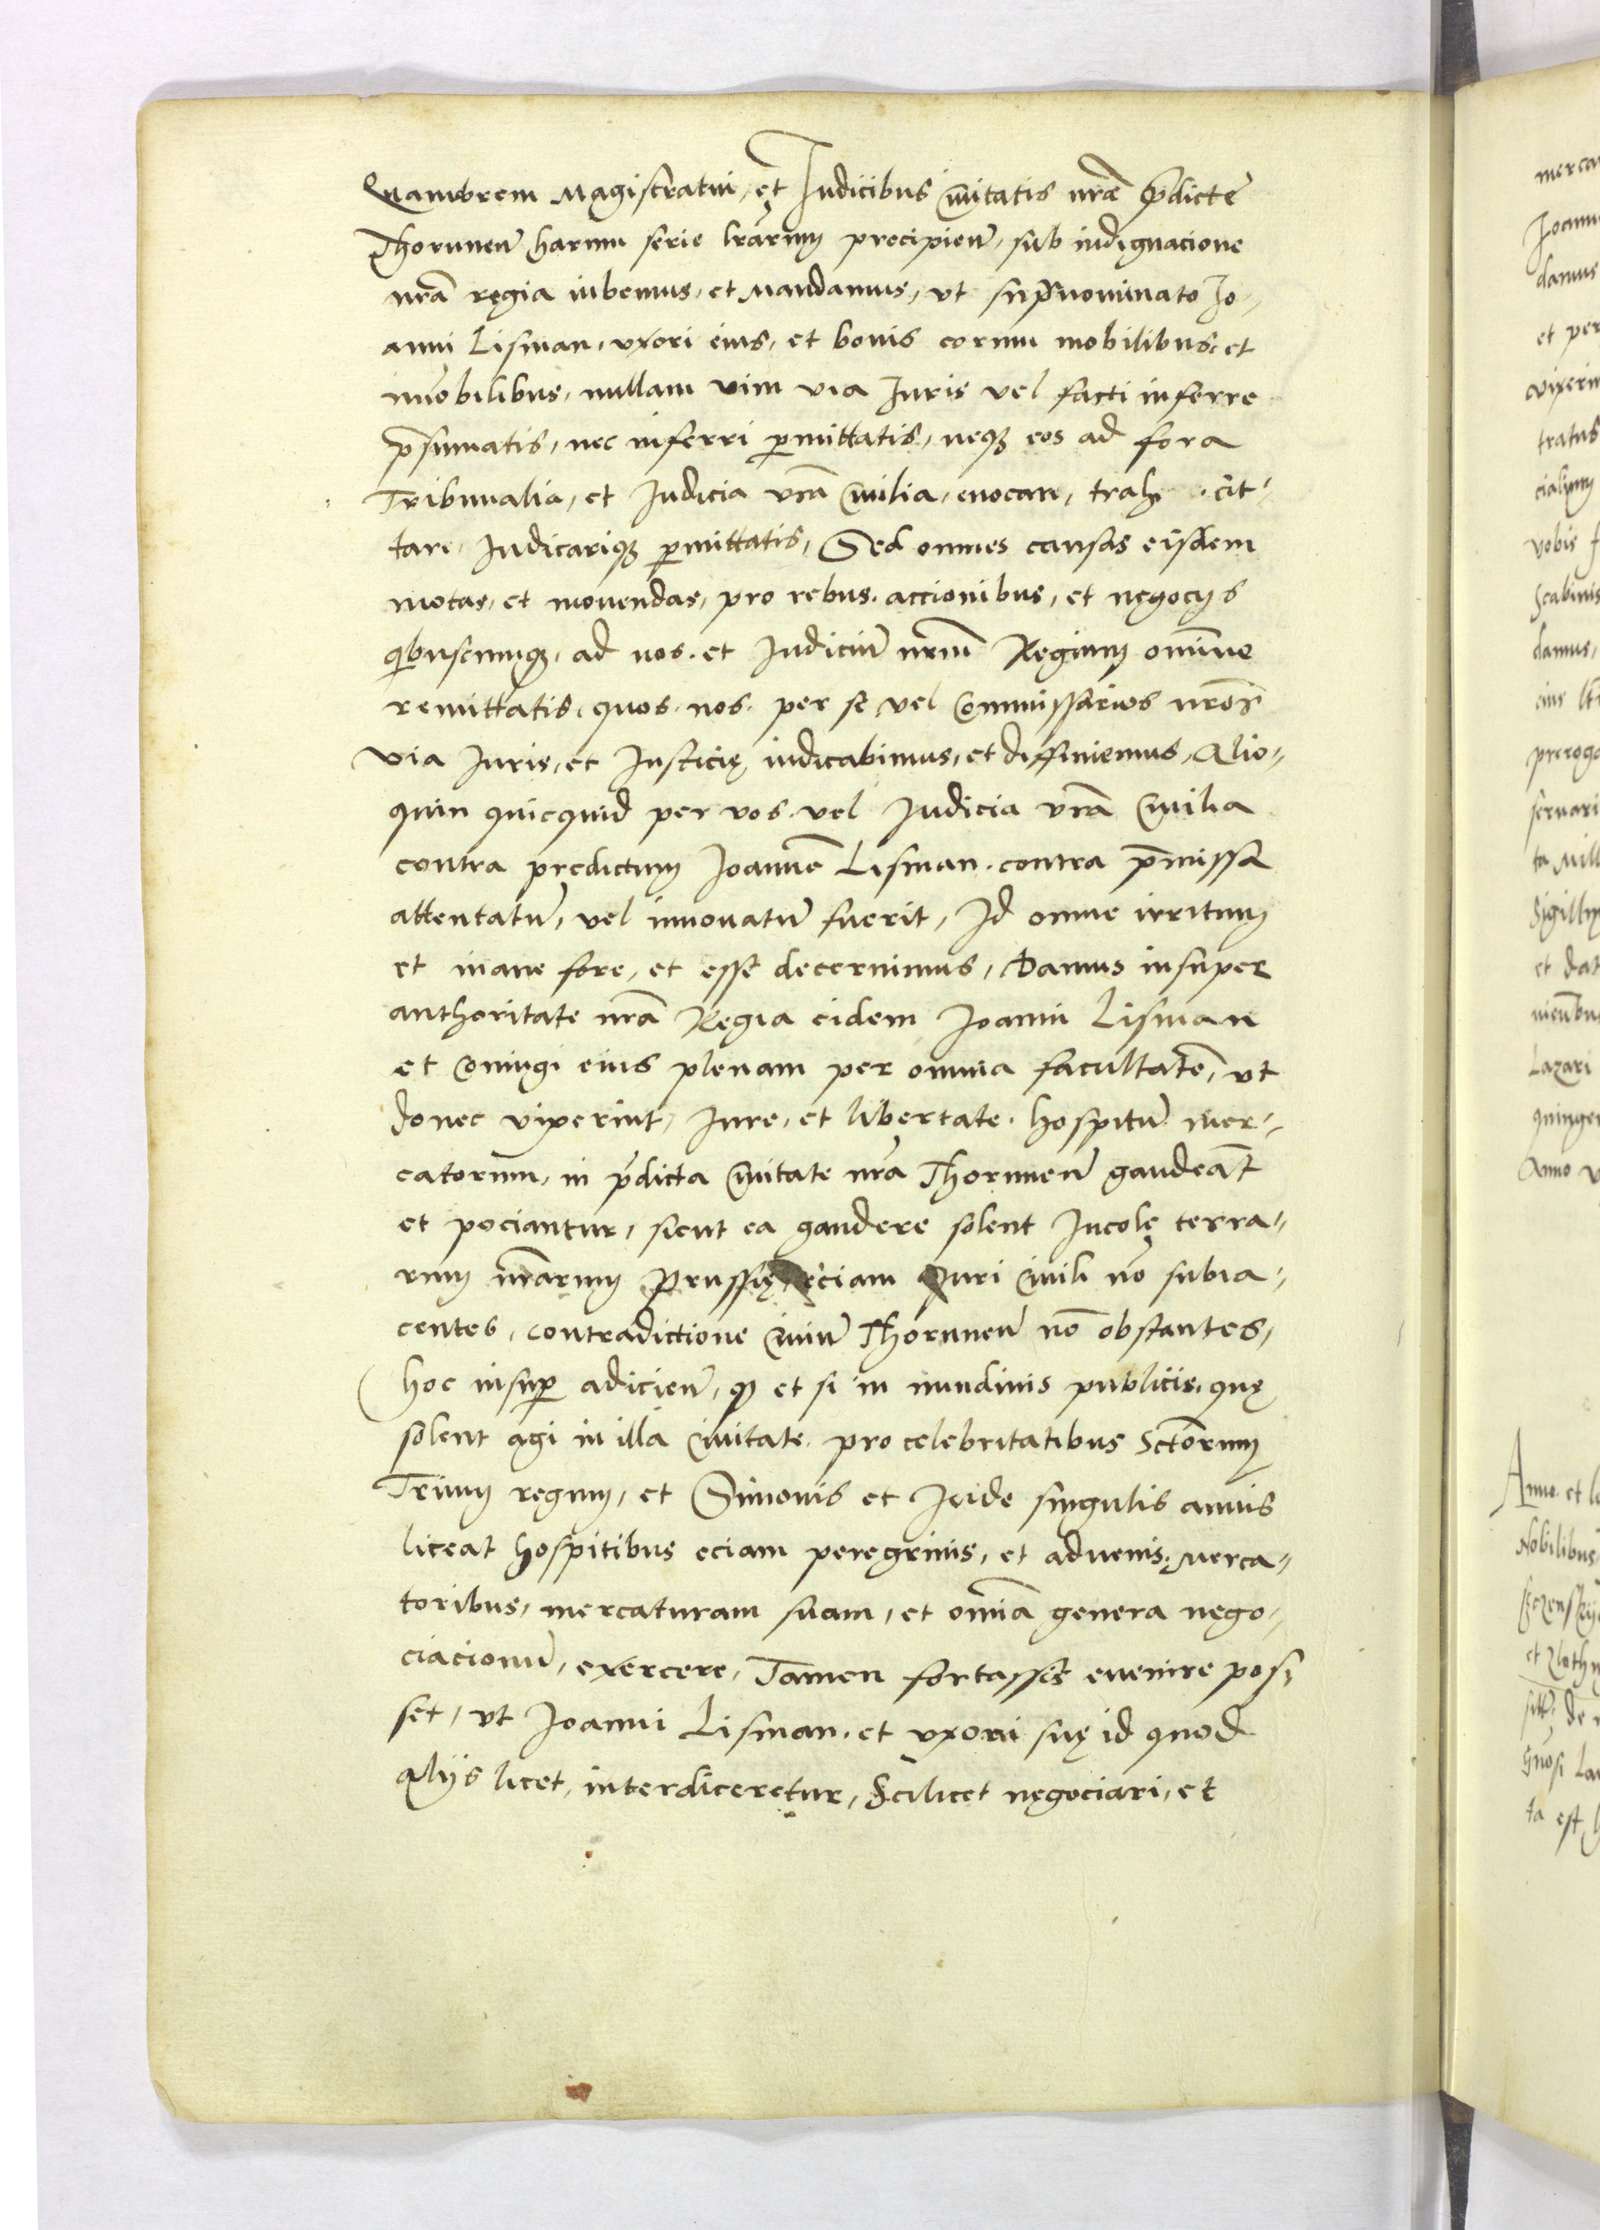 Quamobrem Magistratui, et Iudicibus Ciuitatis nr̃e p̃dicte
Thorunen̄ harum serie lr̃arum precipien̄, sub indignacione
nr̃a regia iubemus, et Mandamus, vt supr̃nominato Io-
anni Lisman, vxori eius, et bonis eorum mobilibus et
im̃obilibus, nullam vim via Iuris vel facti inferre
p̃sumatis, nec inferri ꝑmittatis, neqꝫ eos ad fora
Tribunalia, et Iudicia vr̃a Ciuilia, euocari, trah cit-
tari, Iudicariqꝫ ꝑmittatis, Sed omnes causas eisdem
motas, et mouendas, pro rebus, accionibus, et negocijs
qibuscumqꝫ, ad nos, et Iudiciū nr̃um Regium om̃ine
remittatis, quos nos per se vel Commissarios nr̃os
via Iuris, et Iusticię iudicabimus, et diffiniemus, Alio-
quin quicquid per vos vel Iudicia vr̃a Ciuilia
contra predictum Ioannē Lisman contra p̃missa
attentatū, vel innouatū fuerit, Id omne irritum
et inane fore, et esse decernimus, Damus insuper
authoritate nr̃a Regia eidem Ioanni Lisman
et Coniugi eius plenam per omnia facultatē, vt
donec vixerint, Iure, et libertate hospitū mer-
catorum, in p̃dicta Ciuitate nr̃a Thorunen̄ gaudeāt
et pociantur, sicut ea gaudere solent Incolę terra-
rum nr̃arum Prussię eciam Iuri Ciuili nō subia-
centes, contradictione Ciuiū Thorunen̄ nō obstantes,
hoc insuꝑ adicien̄, qꝫ et si in nundinis publicis, quę
solent agi in illa Ciuitate pro celebritatibus Sctōrum
Trium regum, et Simonis et Iude singulis annis
liceat hospitibus eciam peregrinis, et aduenis Merca-
toribus, mercaturam suam, et om̃ia genera nego-
ciacionū, exercere, Tamen fortassis euenire pos-
set, vt Ioanni Lisman et vxori suę id quod
alijs licet, interdiceretur, Scilicet negociari, et